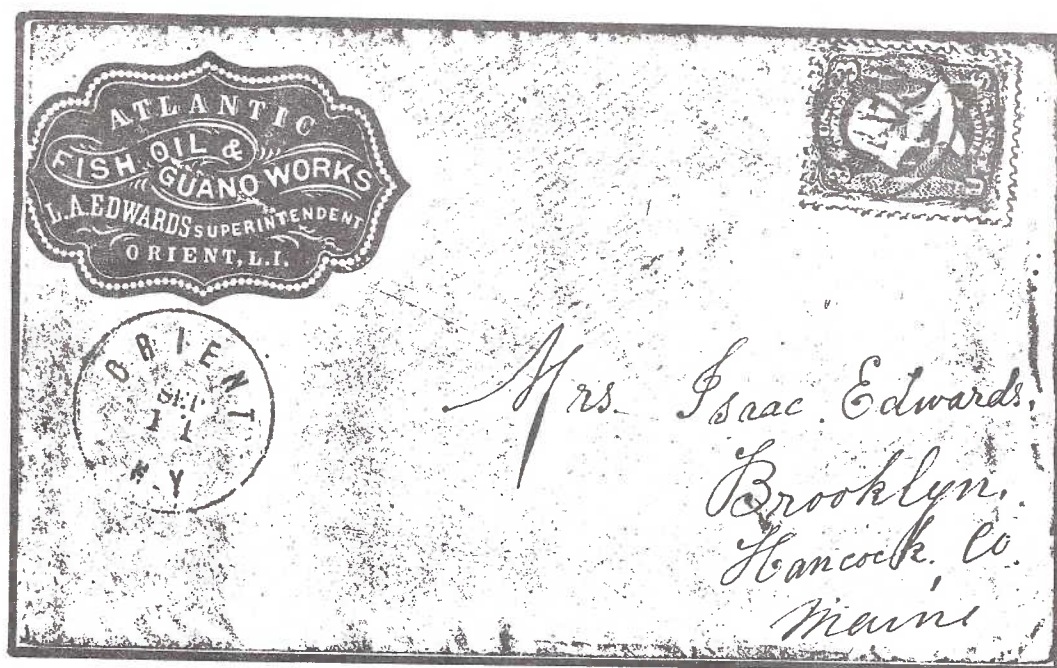 ATLANTIC
FISH OIL &
GUANO WORKS
L.A. EDWARDS SUPERINTENDENT
ORIENT, L.I.
ORIENT
SEP
11
N.Y
3 3
U
Mrs. Isaac Edwards.
Brooklyn.
Hancock. Co.
Maine